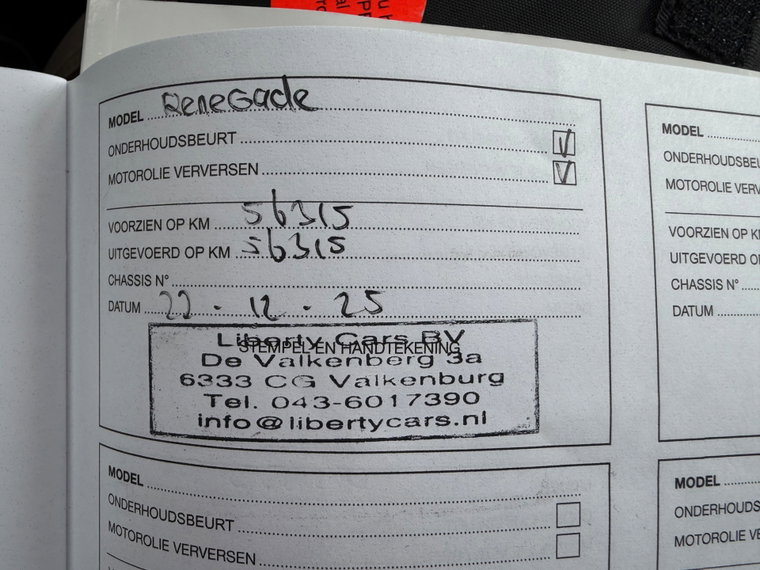 MODEL Renegade
ONDERHOUDSBEURT
MOTOROLIE VERVERSEN
VOORZIEN OP KM 56315
UITGEVOERD OP KM 56315
CHASSIS N°
DATUM 22 - 12 - 25
STEMPEL EN HANDTEKENING
Liberty Cars BV
De Valkenberg 3a
6333 CG Valkenburg
Tel. 043-6017390
info@libertycars.nl
MODEL
ONDERHOUDSBEURT
MOTOROLIE VERVERSEN
MODEL
VOORZIEN OP
UITGEVOERD
CHASSIS N°
DATUM
MODEL
MOTOROLIE